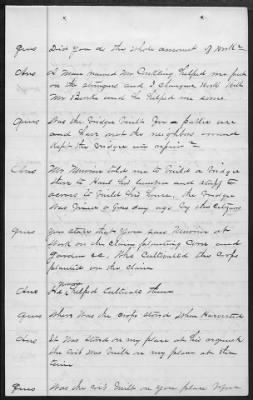 Ques Did you do the whole amount of work?
Ans A man named Mr Cutting helped me put
on the stringers and I changed work with
Mr Burke and he helped me some.
Ques Was the bridge built for a public use
and have not the neighbors around
kept the bridge in repair?
Ans Mr told me to build a bridge
there to haul his lumber and stuff to
across to build his house, the bridge
was years ago by the citizens
Ques You state that you saw at
work on the claim planting Corn and
Garden &c. Who Cultivated the Crops
planted on the claim
Ans He helped Cultivate them
Ques Where was the crops stored when Harvested
Ans It was stored on my place at his request
the crib was built on my place at the
time
Ques Was the crib built on your place before